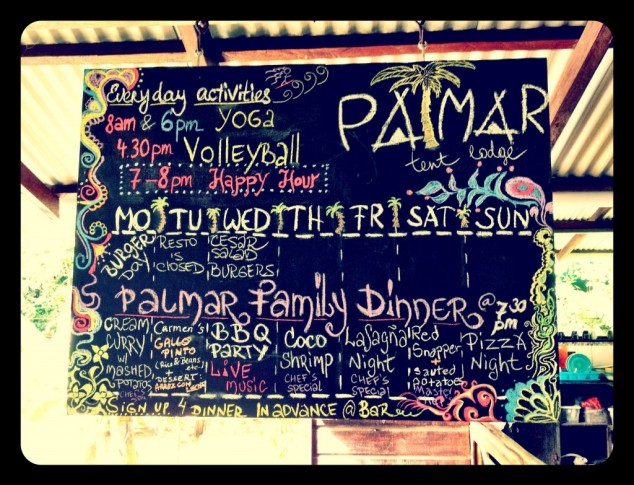 Everyday activities
8am & 6pm YOGA
4.30pm Volleyball
7-8pm Happy Hour
PALMAR
tent lodge
MO TU WED TH FR SAT SUN
BURGER DAY
RESTO IS CLOSED
CESAR SALAD
BURGERS
PALMAR Family Dinner @ 7.30 pm
CREAM CURRY W/ MASHED POTATOS
Carmen's GALLO PINTO (Rice & Beans etc.) + DESSERT: ARROZ CON LECHE
BBQ PARTY LIVE MUSIC
COCO Shrimp CHEF'S SPECIAL
LaSagna Night CHEF'S SPECIAL
Red Snapper + Sauted Potatoes
PIZZA Night
SIGN UP 4 DINNER IN ADVANCE @ BAR